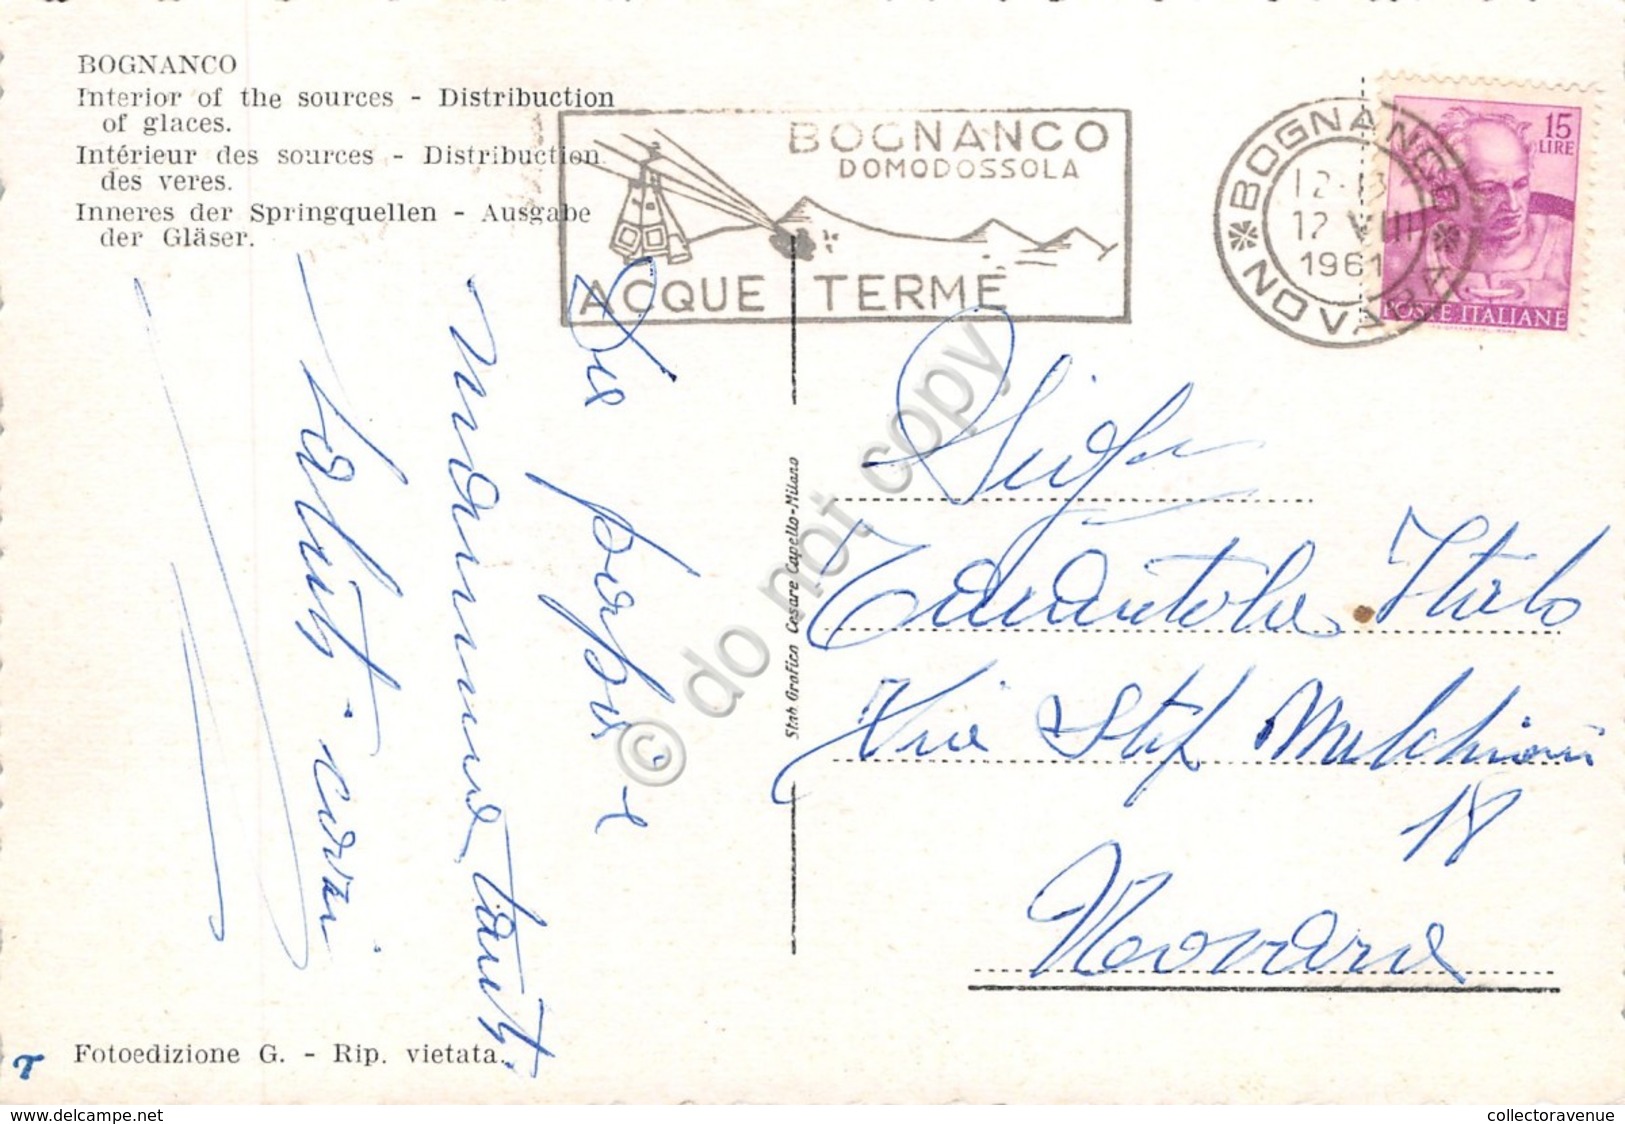 BOGNANCO
Interior of the sources - Distribuction
of glaces.
Intérieur des sources - Distribuction
des veres.
Inneres der Springquellen - Ausgabe
der Gläser.
BOGNANCO
DOMODOSSOLA
ACQUE TERME
BOGNANCO
12-13
12 VIII
1961
NOVARA
15
LIRE
POSTE ITALIANE
Da papà e
mamma tanti
saluti - cari
Stab. Grafico Cesare Capello - Milano
Sig.
Tarantola Italo
Via Stef Melchioni
18
Novara
Fotoedizione G. - Rip. vietata.
© do not copy
www.delcampe.net
collectoravenue